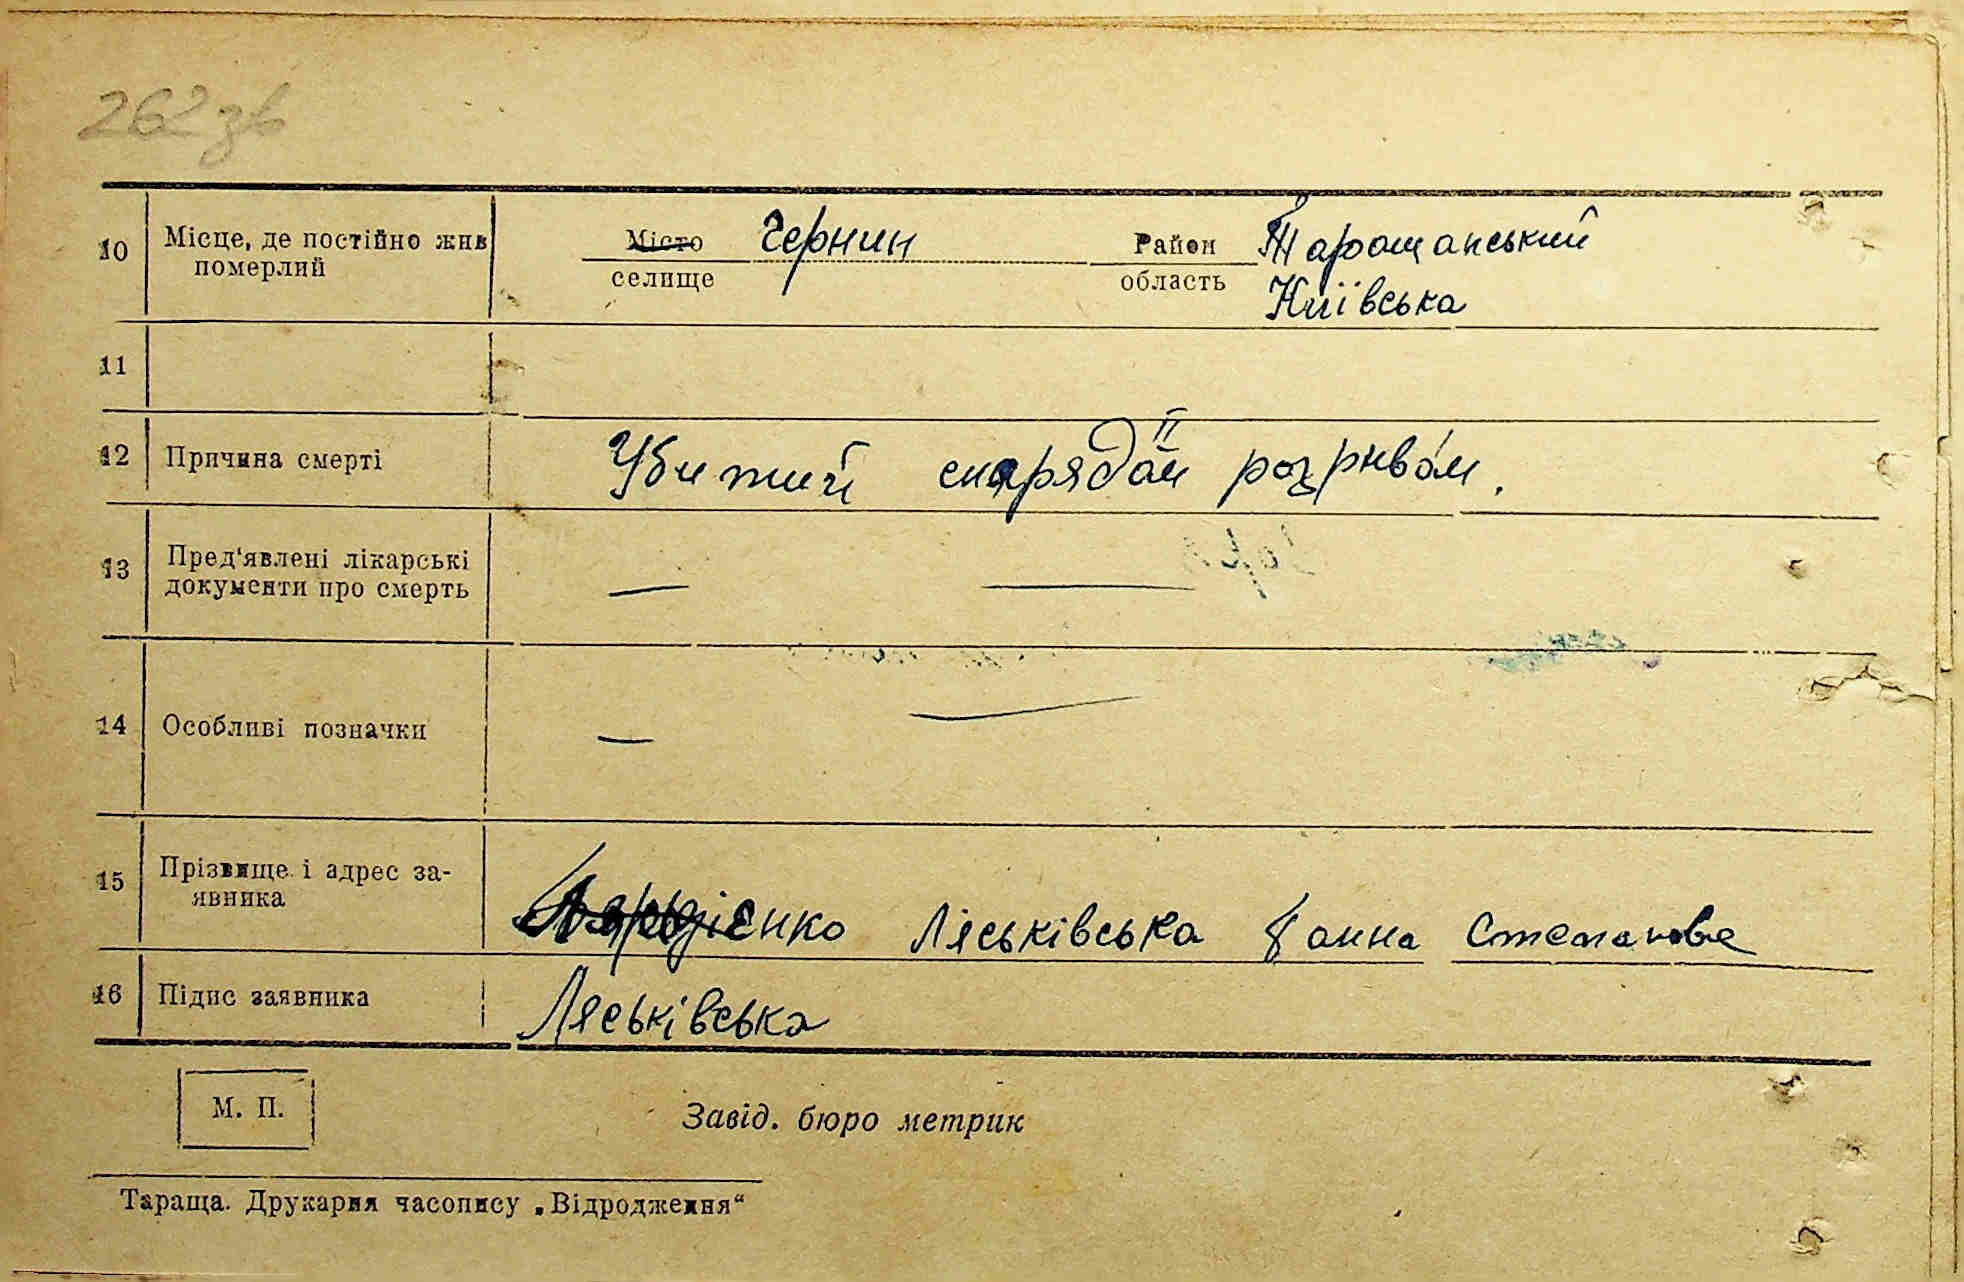 262 зв
10 Місце, де постійно жив Місто Чернин Район Таращанський
померлий селище область Київська
11
12 Причина смерті Убитий снарядом розривом.
13 Пред'явлені лікарські
документи про смерть — —
14 Особливі позначки — —
15 Прізвище і адрес за-
явника Ляськівська Ганна Степановна
16 Підпис заявника Ляськівська
М. П. Завід. бюро метрик
Тараща. Друкарня часопису „Відродження“